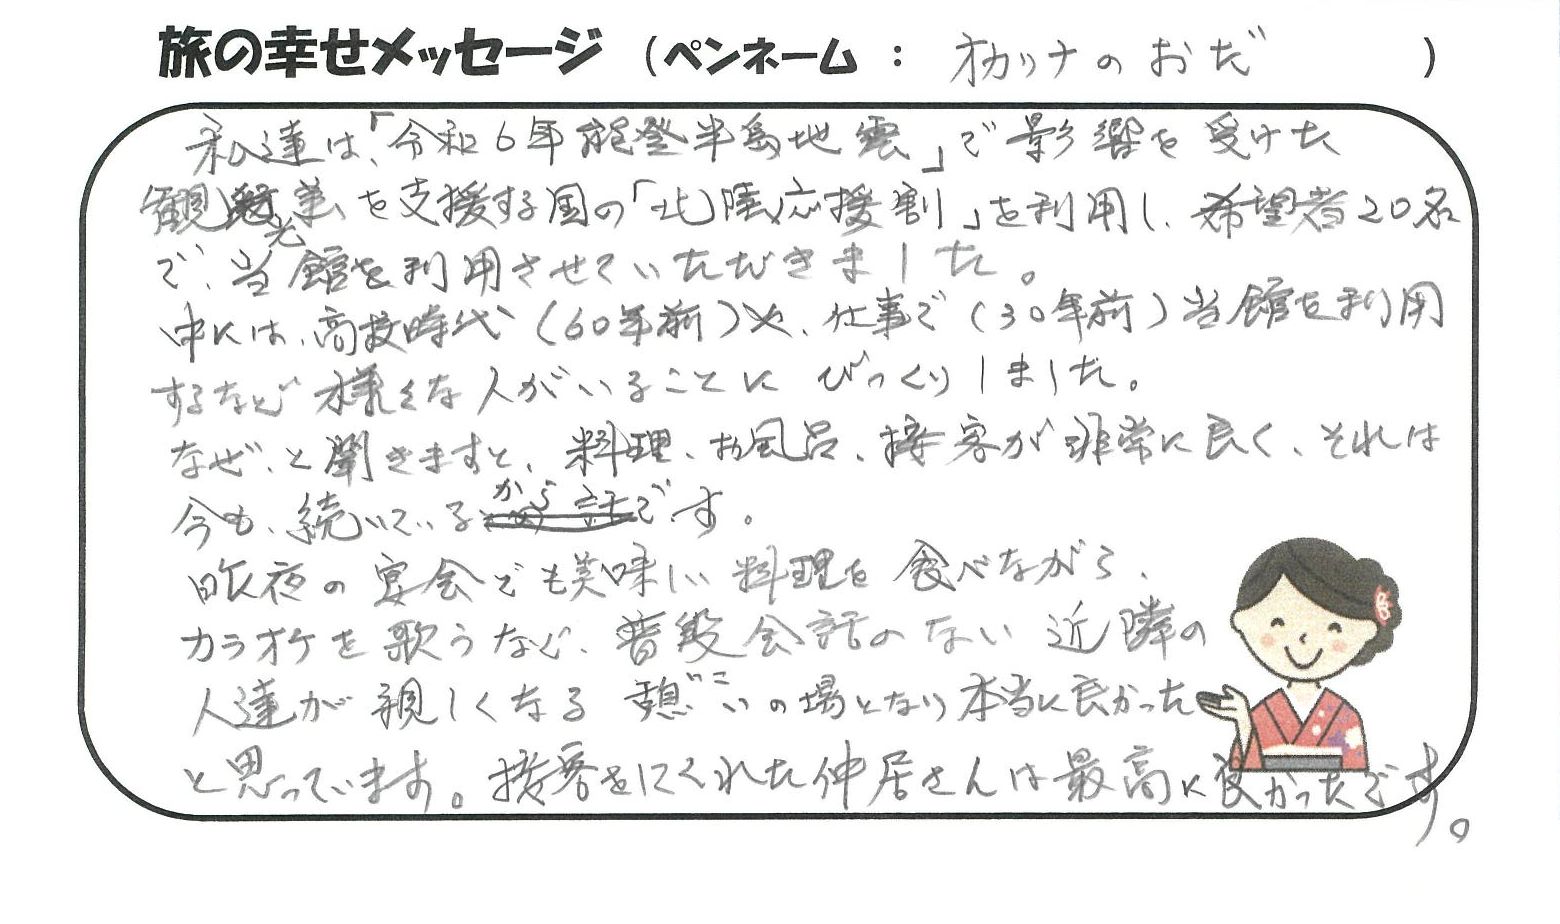 旅の幸せメッセージ (ペンネーム : オカッナのおだ )
私達は、「令和6年能登半島地震」で影響を受けた
観光業を支援する国の「北陸応援割」を利用し、希望者20名
で、当館を利用させていただきました。
中には、高校時代(60年前)や、仕事で(30年前)当館を利用
するなど様々な人がいることにびっくりしました。
なぜ、と聞きますと、料理、お風呂、接客が非常に良く、それは
今も、続いているからです。
昨夜の宴会でも美味しい料理を食べながら、
カラオケを歌うなど、普段会話のない近隣の
人達が親しくなる憩いの場となり本当に良かった
と思っています。接客をしてくれた仲居さんは最高に良かったです。